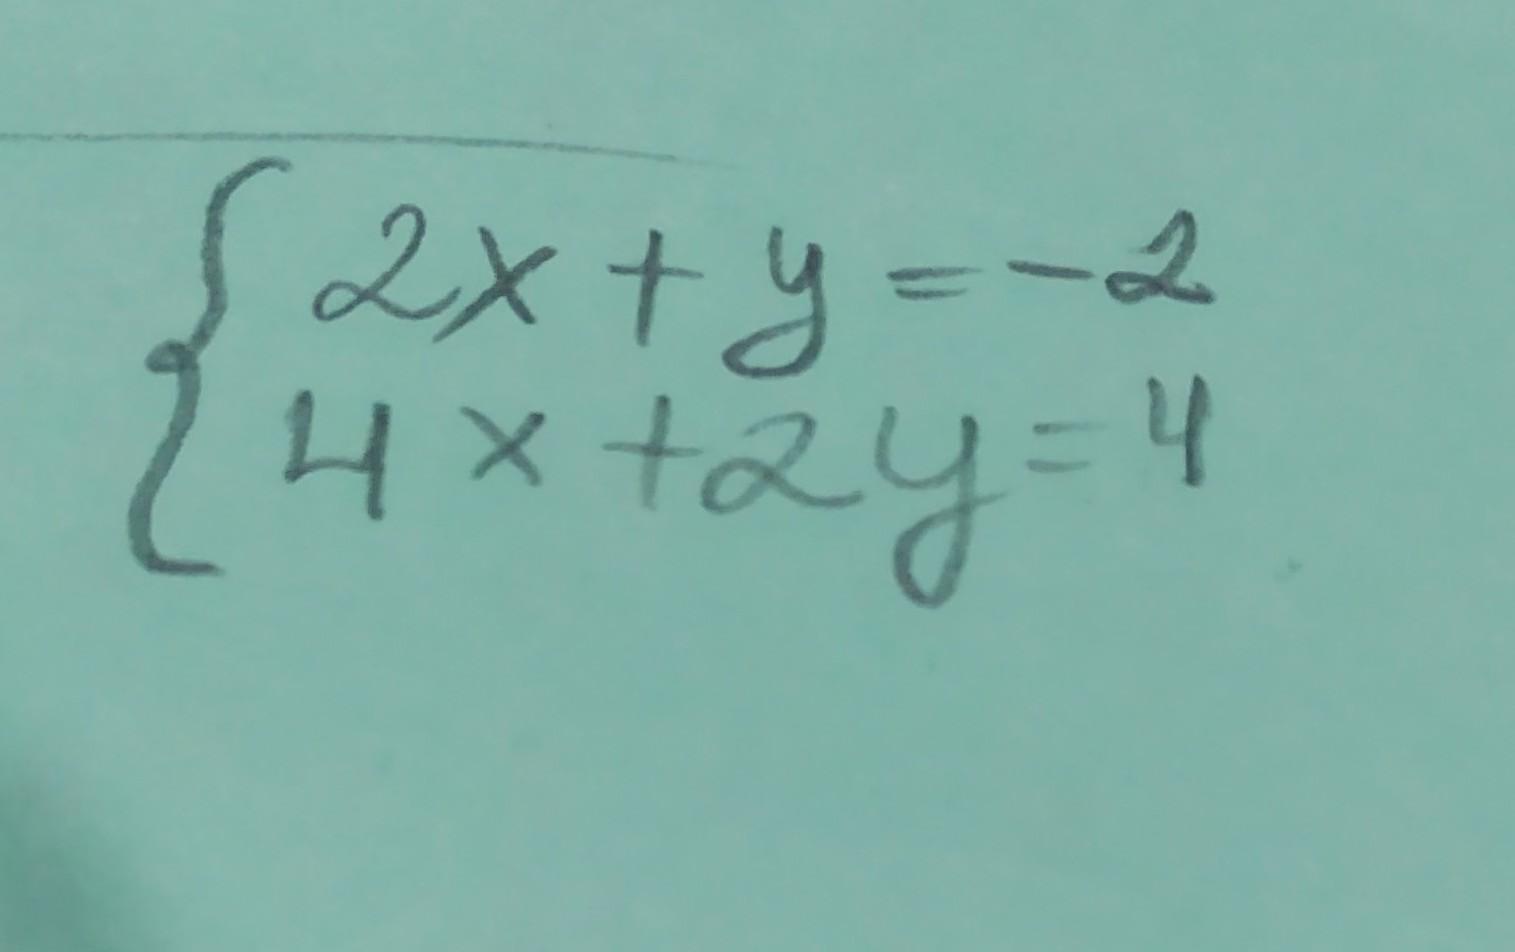 2x + y = -2
4x + 2y = 4